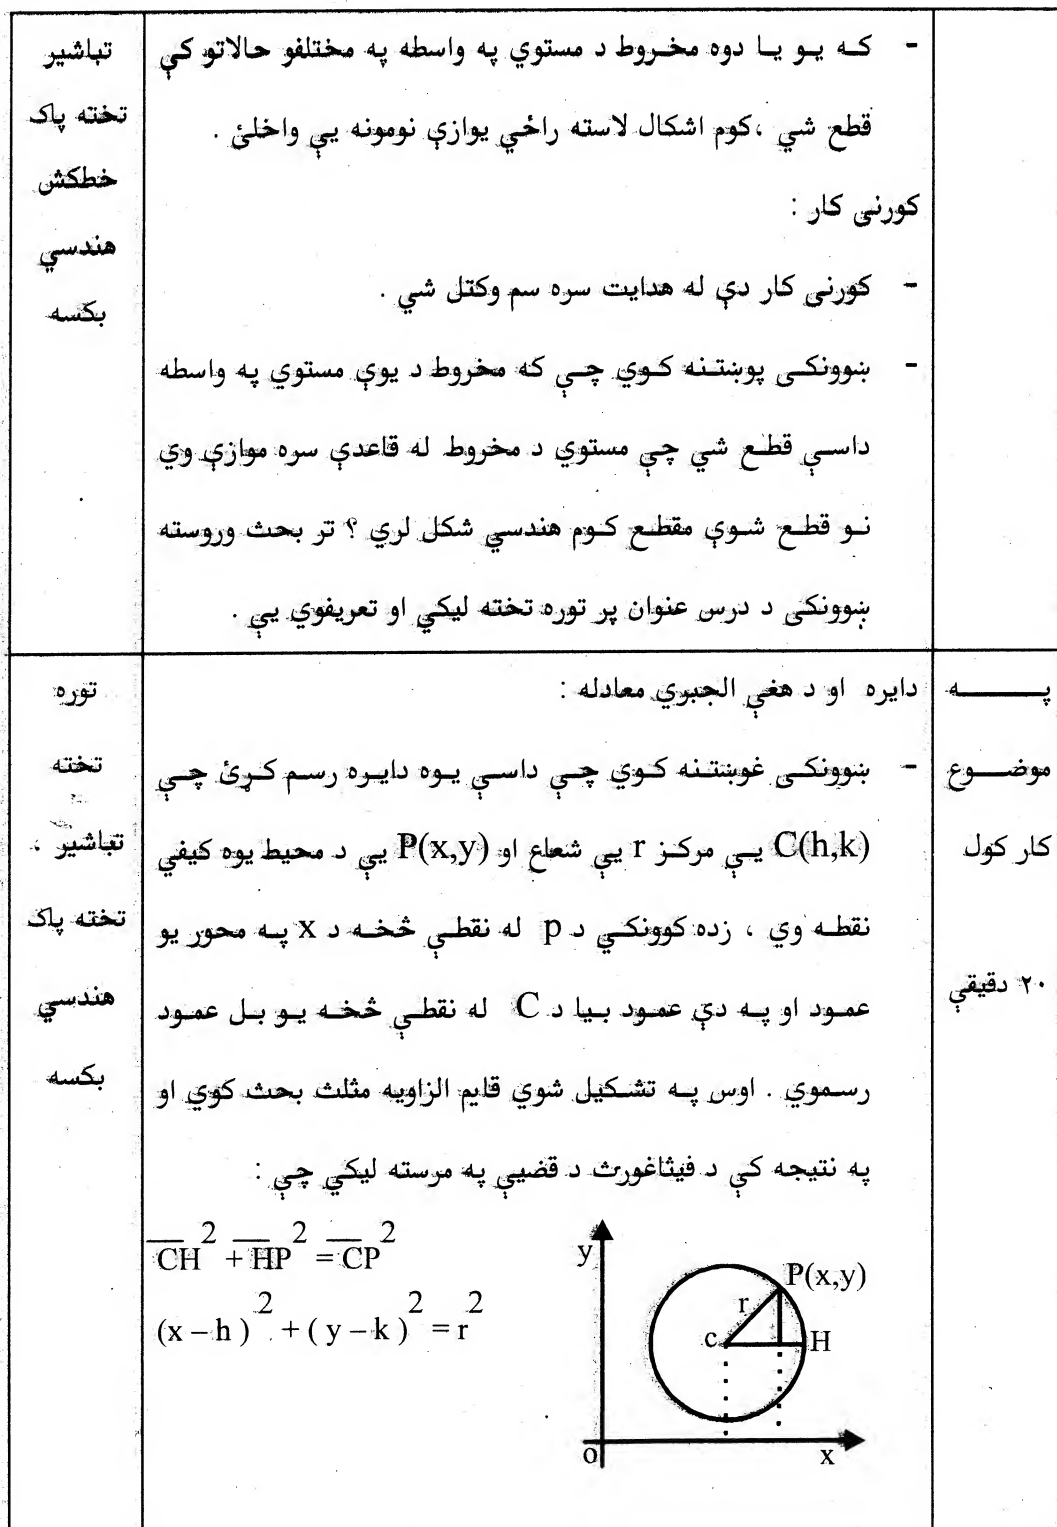 - که يو يا دوه مخروط د مستوي په واسطه په مختلفو حالاتو کې
قطع شي ،کوم اشکال لاسته راځي يوازې نومونه يې واخلئ .
کورنی کار :
- کورنی کار دې له هدايت سره سم وکتل شي .
- ښوونکی پوښتنه کوي چې که مخروط د يوې مستوي په واسطه
داسې قطع شي چې مستوي د مخروط له قاعدې سره موازې وي
نو قطع شوې مقطع کوم هندسي شکل لري ؟ تر بحث وروسته
ښوونکی د درس عنوان پر توره تخته ليکي او تعريفوي يې .
تباشير
تخته پاک
خطکش
هندسي
بکسه
په
موضوع
کار کول
۲۰ دقيقې
دايره او د هغې الجبري معادله :
- ښوونکی غوښتنه کوي چې داسې يوه دايره رسم کړئ چې
C(h,k) يې مرکز r يې شعاع او P(x,y) يې د محيط يوه کيفي
نقطه وي ، زده کوونکي د p له نقطې څخه د x په محور يو
عمود او په دې عمود بيا د C له نقطې څخه يو بل عمود
رسموي . اوس په تشکيل شوي قايم الزاويه مثلث بحث کوي او
په نتيجه کې د فيثاغورث د قضيې په مرسته ليکي چې :
CH² + HP² = CP²
(x – h)² + (y – k)² = r²
y
P(x,y)
r
c
H
o
x
توره
تخته
تباشير ،
تخته پاک
هندسي
بکسه